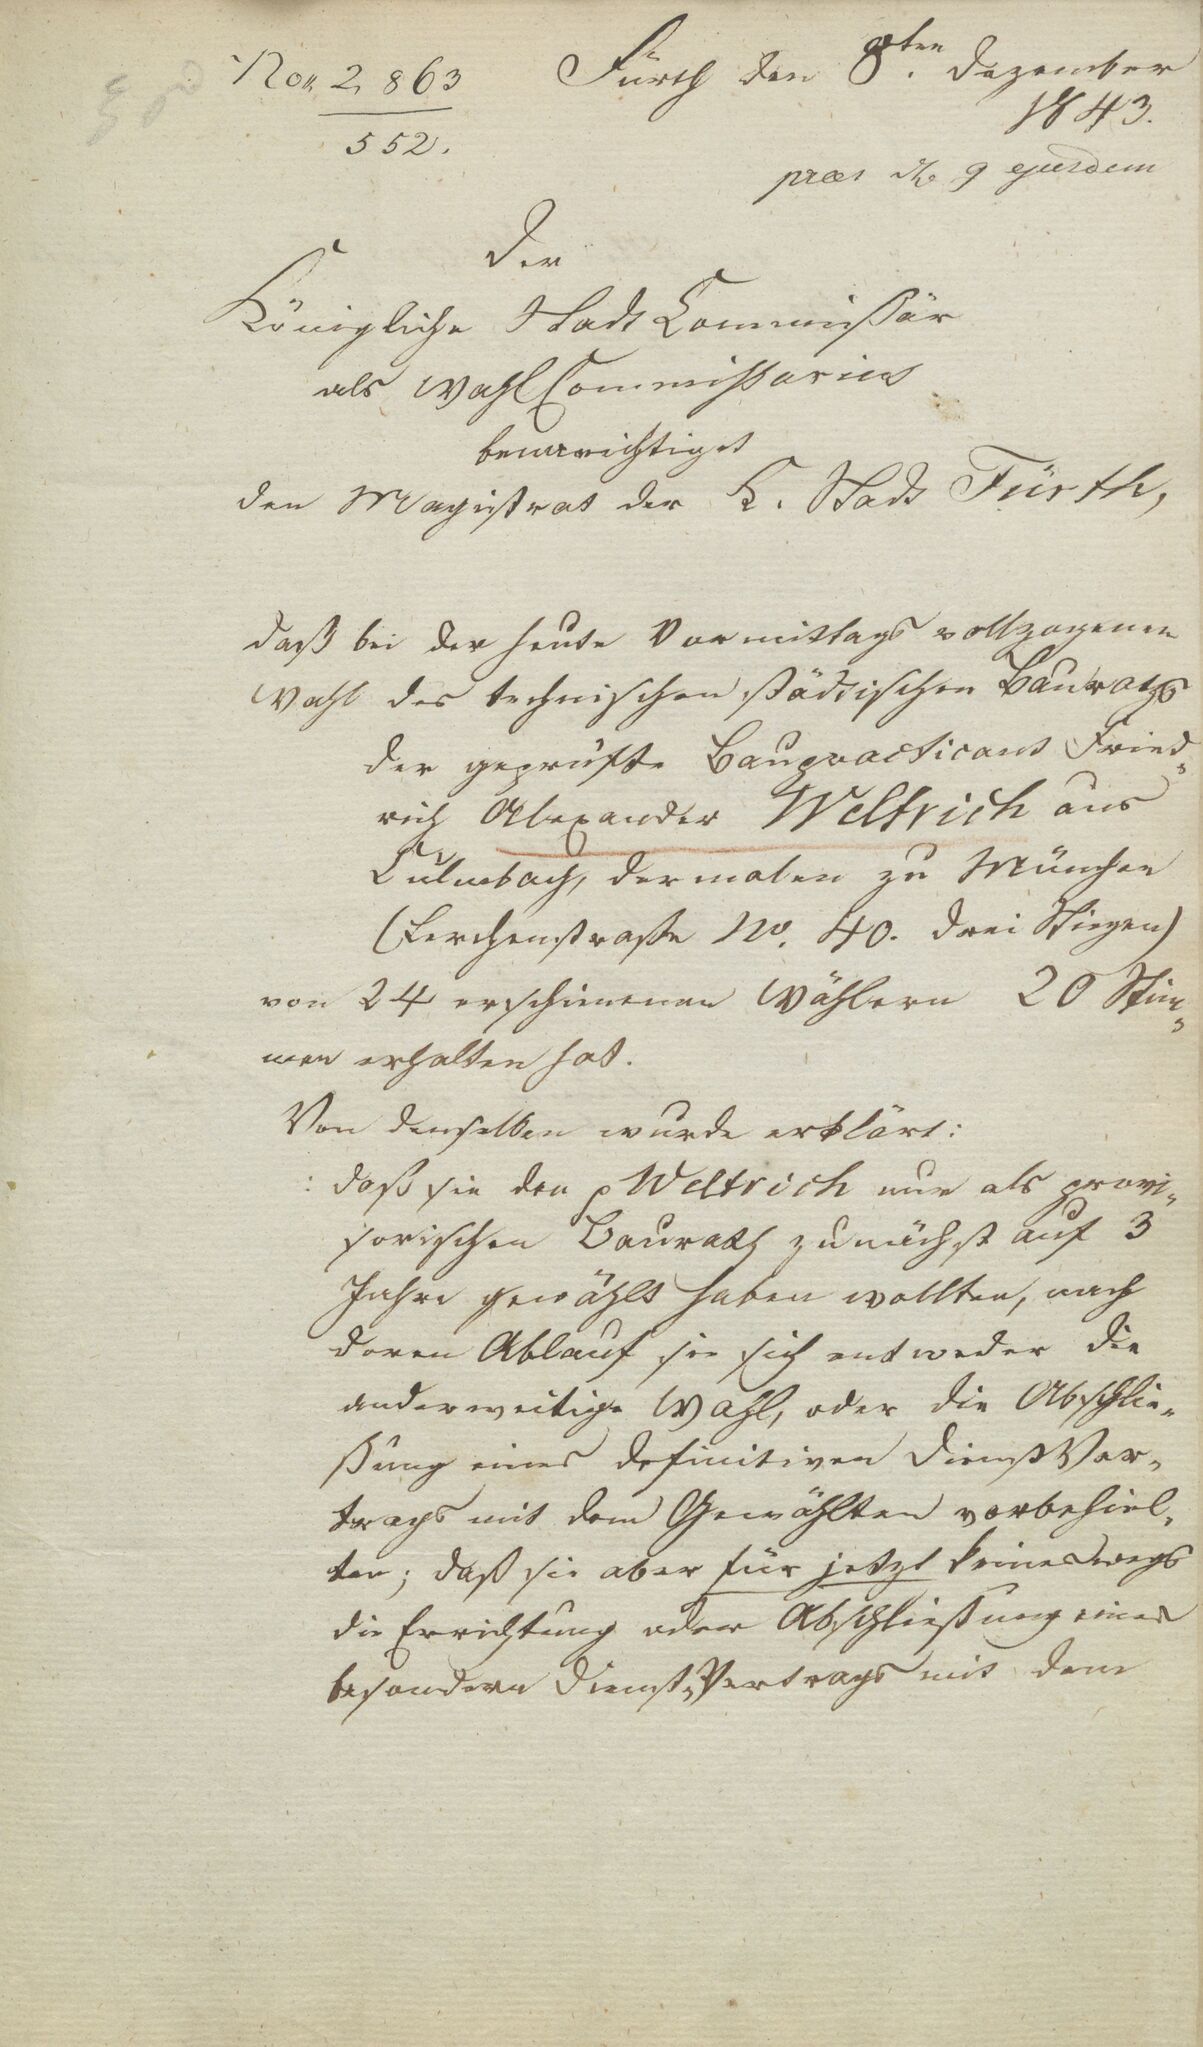 No. 2863
Fürth den 8ten. Dezember
1843.
552.
praes. d. 9 ejusdem
Der
Königliche Stadt Commissär
als Wahl Commissarius
benachrichtiget
den Magistrat der K. Stadt Fürth,
daß bei der heute Vormittags vollzogenen
Wahl des technischen städtischen Bauraths
der geprüfte Baupracticant Fried-
rich Alexander Weltrich aus
Culmbach, dermalen zu München
(Lerchenstraße No. 40. drei Stiegen)
von 24 erschienenen Wählern 20 Stim-
men erhalten hat.
Von denselben wurde erklärt:
: daß sie den p Weltrich nur als provi-
sorischen Baurath zunächst auf 3
Jahre gewählt haben wollten, nach
deren Ablauf sie sich entweder die
anderweitige Wahl, oder die Abschlie-
ßung eines definitiven Dienst Ver-
trags mit dem Gewählten vorbehiel-
ten; daß sie aber für jetzt keineswegs
die Errichtung oder Abschließung eines
besondern Dienst-Vertrags mit dem